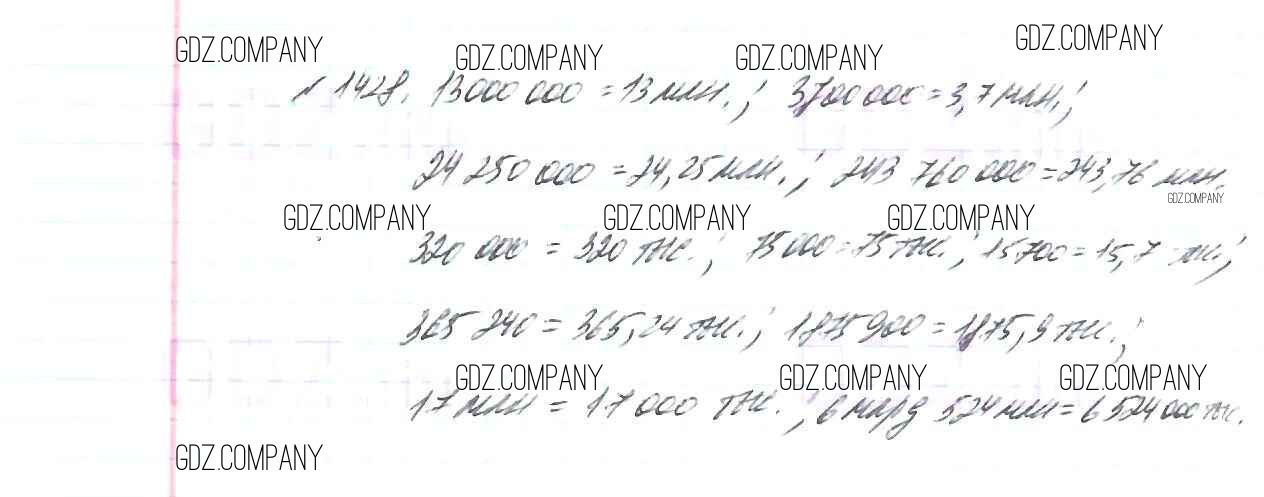 GDZ.COMPANY GDZ.COMPANY GDZ.COMPANY GDZ.COMPANY
№ 1428. 13 000 000 = 13 млн.; 3700 000 = 3,7 млн.;
24 250 000 = 24,25 млн.; 243 760 000 = 243,76 млн.
GDZ.COMPANY GDZ.COMPANY GDZ.COMPANY GDZ.COMPANY
320 000 = 320 тыс.; 75 000 = 75 тыс.; 15 700 = 15,7 тыс.;
365 240 = 365,24 тыс.; 1875 900 = 1875,9 тыс.;
GDZ.COMPANY GDZ.COMPANY GDZ.COMPANY
17 млн = 17 000 тыс.; 6 млрд 524 млн = 6 524 000 тыс.
GDZ.COMPANY